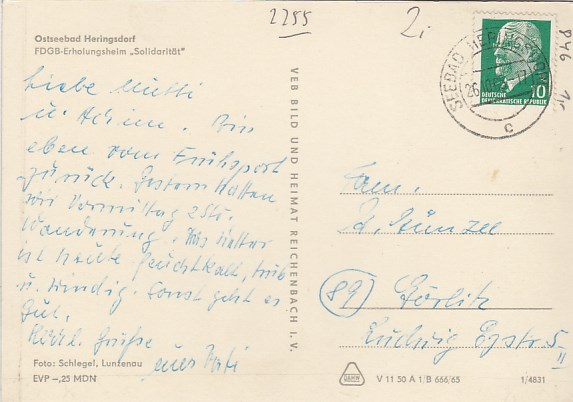 2255
2.
Ostseebad Heringsdorf
FDGB-Erholungsheim „Solidarität"
Liebe Mutti
u. Achim. Bin
eben vom Frühsport
zurück. Gestern hatten
wir Vormittag 2 Std.
Wanderung. Das Wetter
ist heute feuchtkalt, trüb
u. windig. Sonst geht es
gut.
Herzl. Grüße
euer Vati
Foto: Schlegel, Lunzenau
EVP –,25 MDN
VEB BILD UND HEIMAT REICHENBACH I. V.
SEEBAD HERINGSDORF
c
DEUTSCHE
DEMOKRATISCHE REPUBLIK
10
Fam.
(89) Görlitz
Ludwig
V 11 50 A 1/B 666/65
1/4831